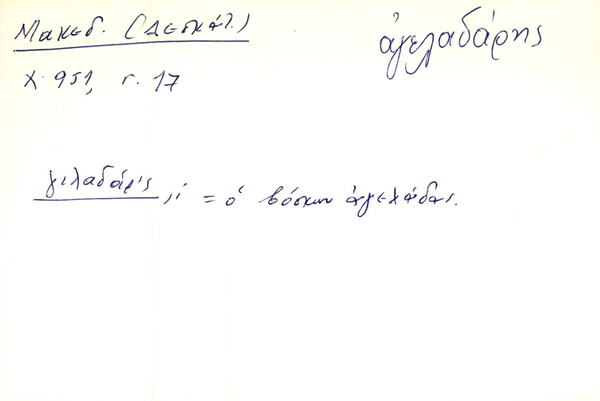 Μακεδ. (Δεσκάτ.)
ἀγελαδάρης
Χ. 951, σ. 17
γιλαδάρ'ς, ἰ = ὁ βόσκων ἀγελάδας.